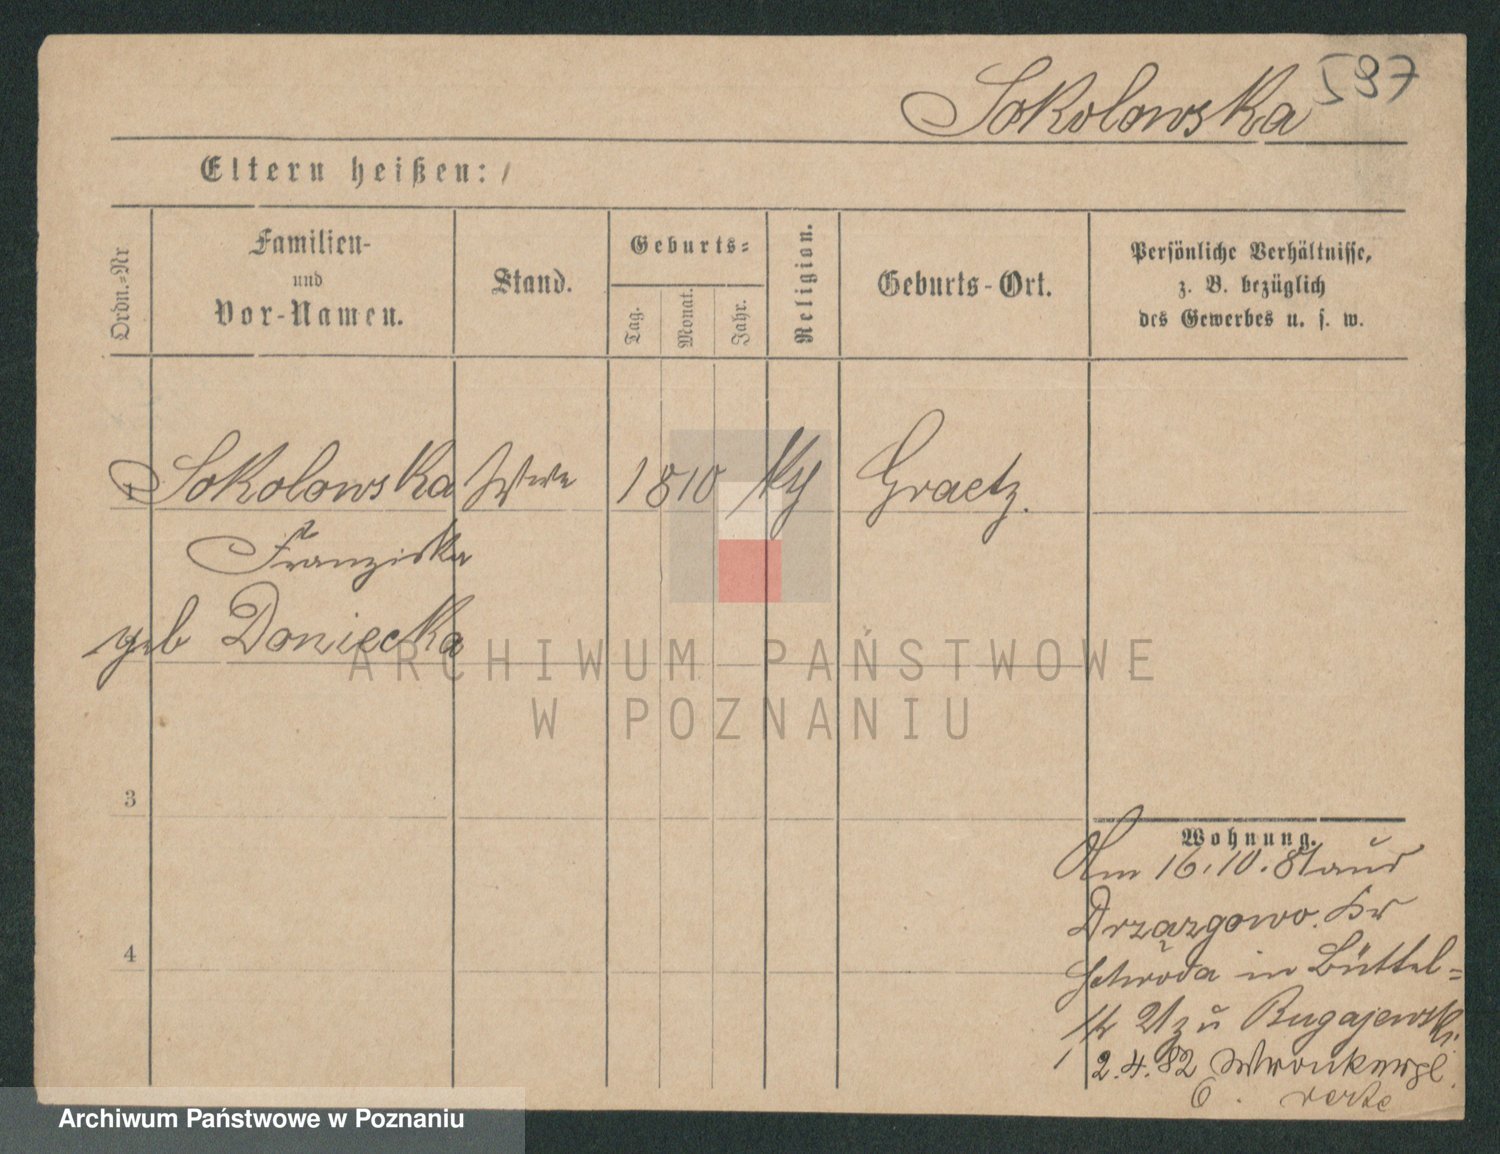 Sokolowska 597
Eltern heißen:
Ordn.-Nr
Familien-
und
Vor-Namen.
Stand.
Geburts-
Tag.
Monat.
Jahr.
Religion.
Geburts-Ort.
Persönliche Verhältnisse,
z. B. bezüglich
des Gewerbes u. s. w.
1 Sokolowska Wwe 1810 Graetz.
Franziska
geb Doniecka
ARCHIWUM PAŃSTWOWE
W POZNANIU
3
4
Wohnung.
Am 16.10.81 aus
Drzązgowo. Kr
Schroda in Büttel-
str 21 zu Bugajewski.
2.4.82 Wronkerpl
6. verte
Archiwum Państwowe w Poznaniu